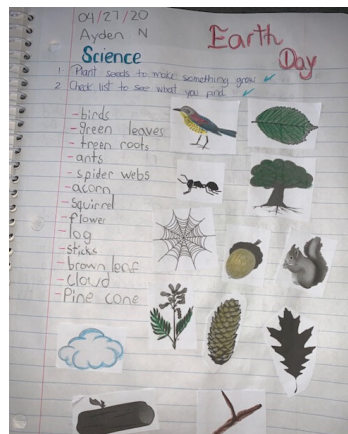 04/27/20
Ayden N
Earth
Day
Science
1 Plant seeds to make something grow ✓
2 Check list to see what you find ✓
-birds
-green leaves
-treen roots
-ants
-spider webs
-acorn
-squirrel
-flower
-log
-sticks
-brown leaf
-cloud
-Pine cone